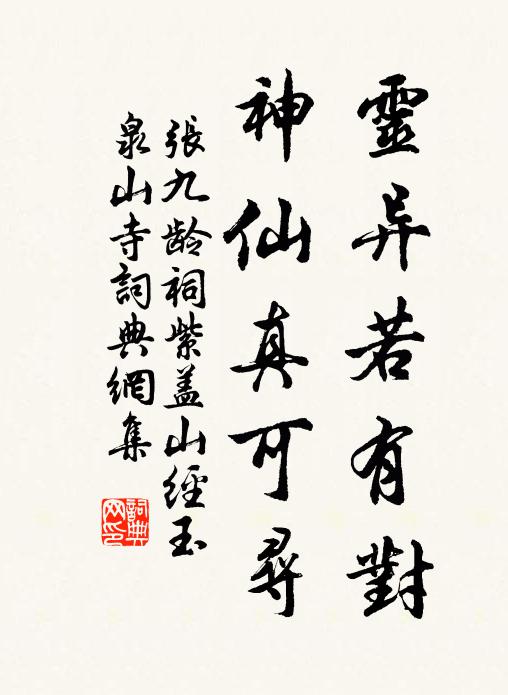 靈异若有對
神仙真可尋
張九龄祠紫盖山經玉
泉山寺詞典網集
詞典
网印